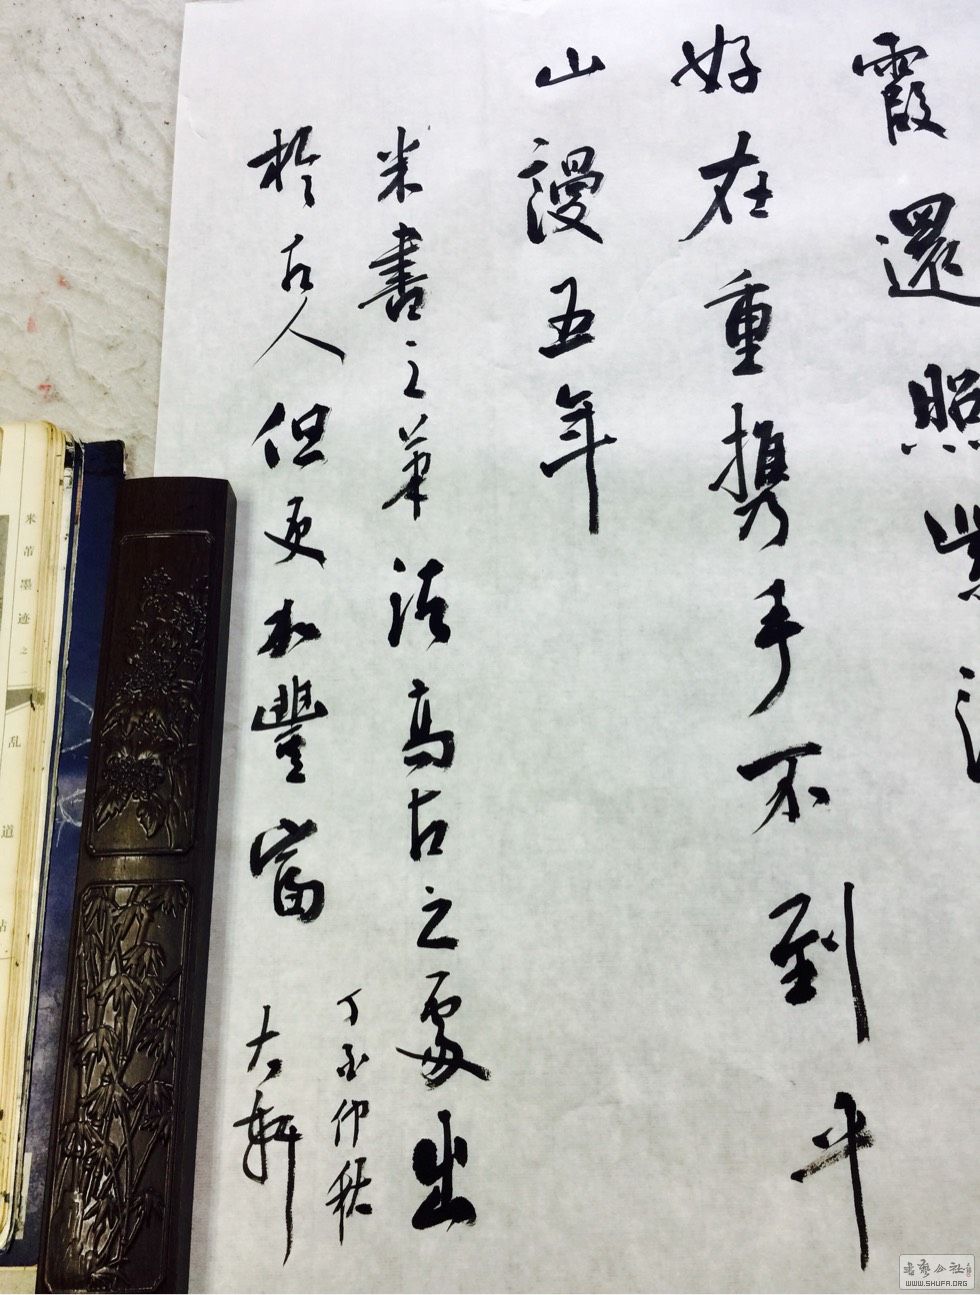 霞還照紫
好在重携手不到斗
山謾五年
米書之筆法高古之處出
於古人但更加豐富
丁酉仲秋
大軒
米芾墨迹之
乱
道
帖
書法公社
WWW.SHUFA.ORG